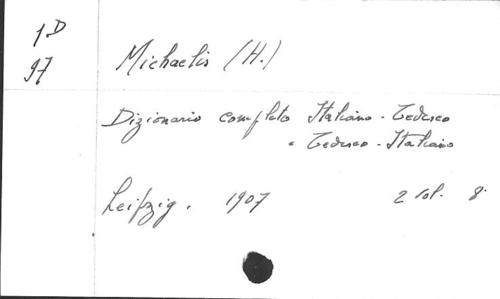 1D
97
Michaelis (H.)
Dizionario completo Italiano - Tedesco
e Tedesco - Italiano
Leipzig. 1907 2 vol. 8°